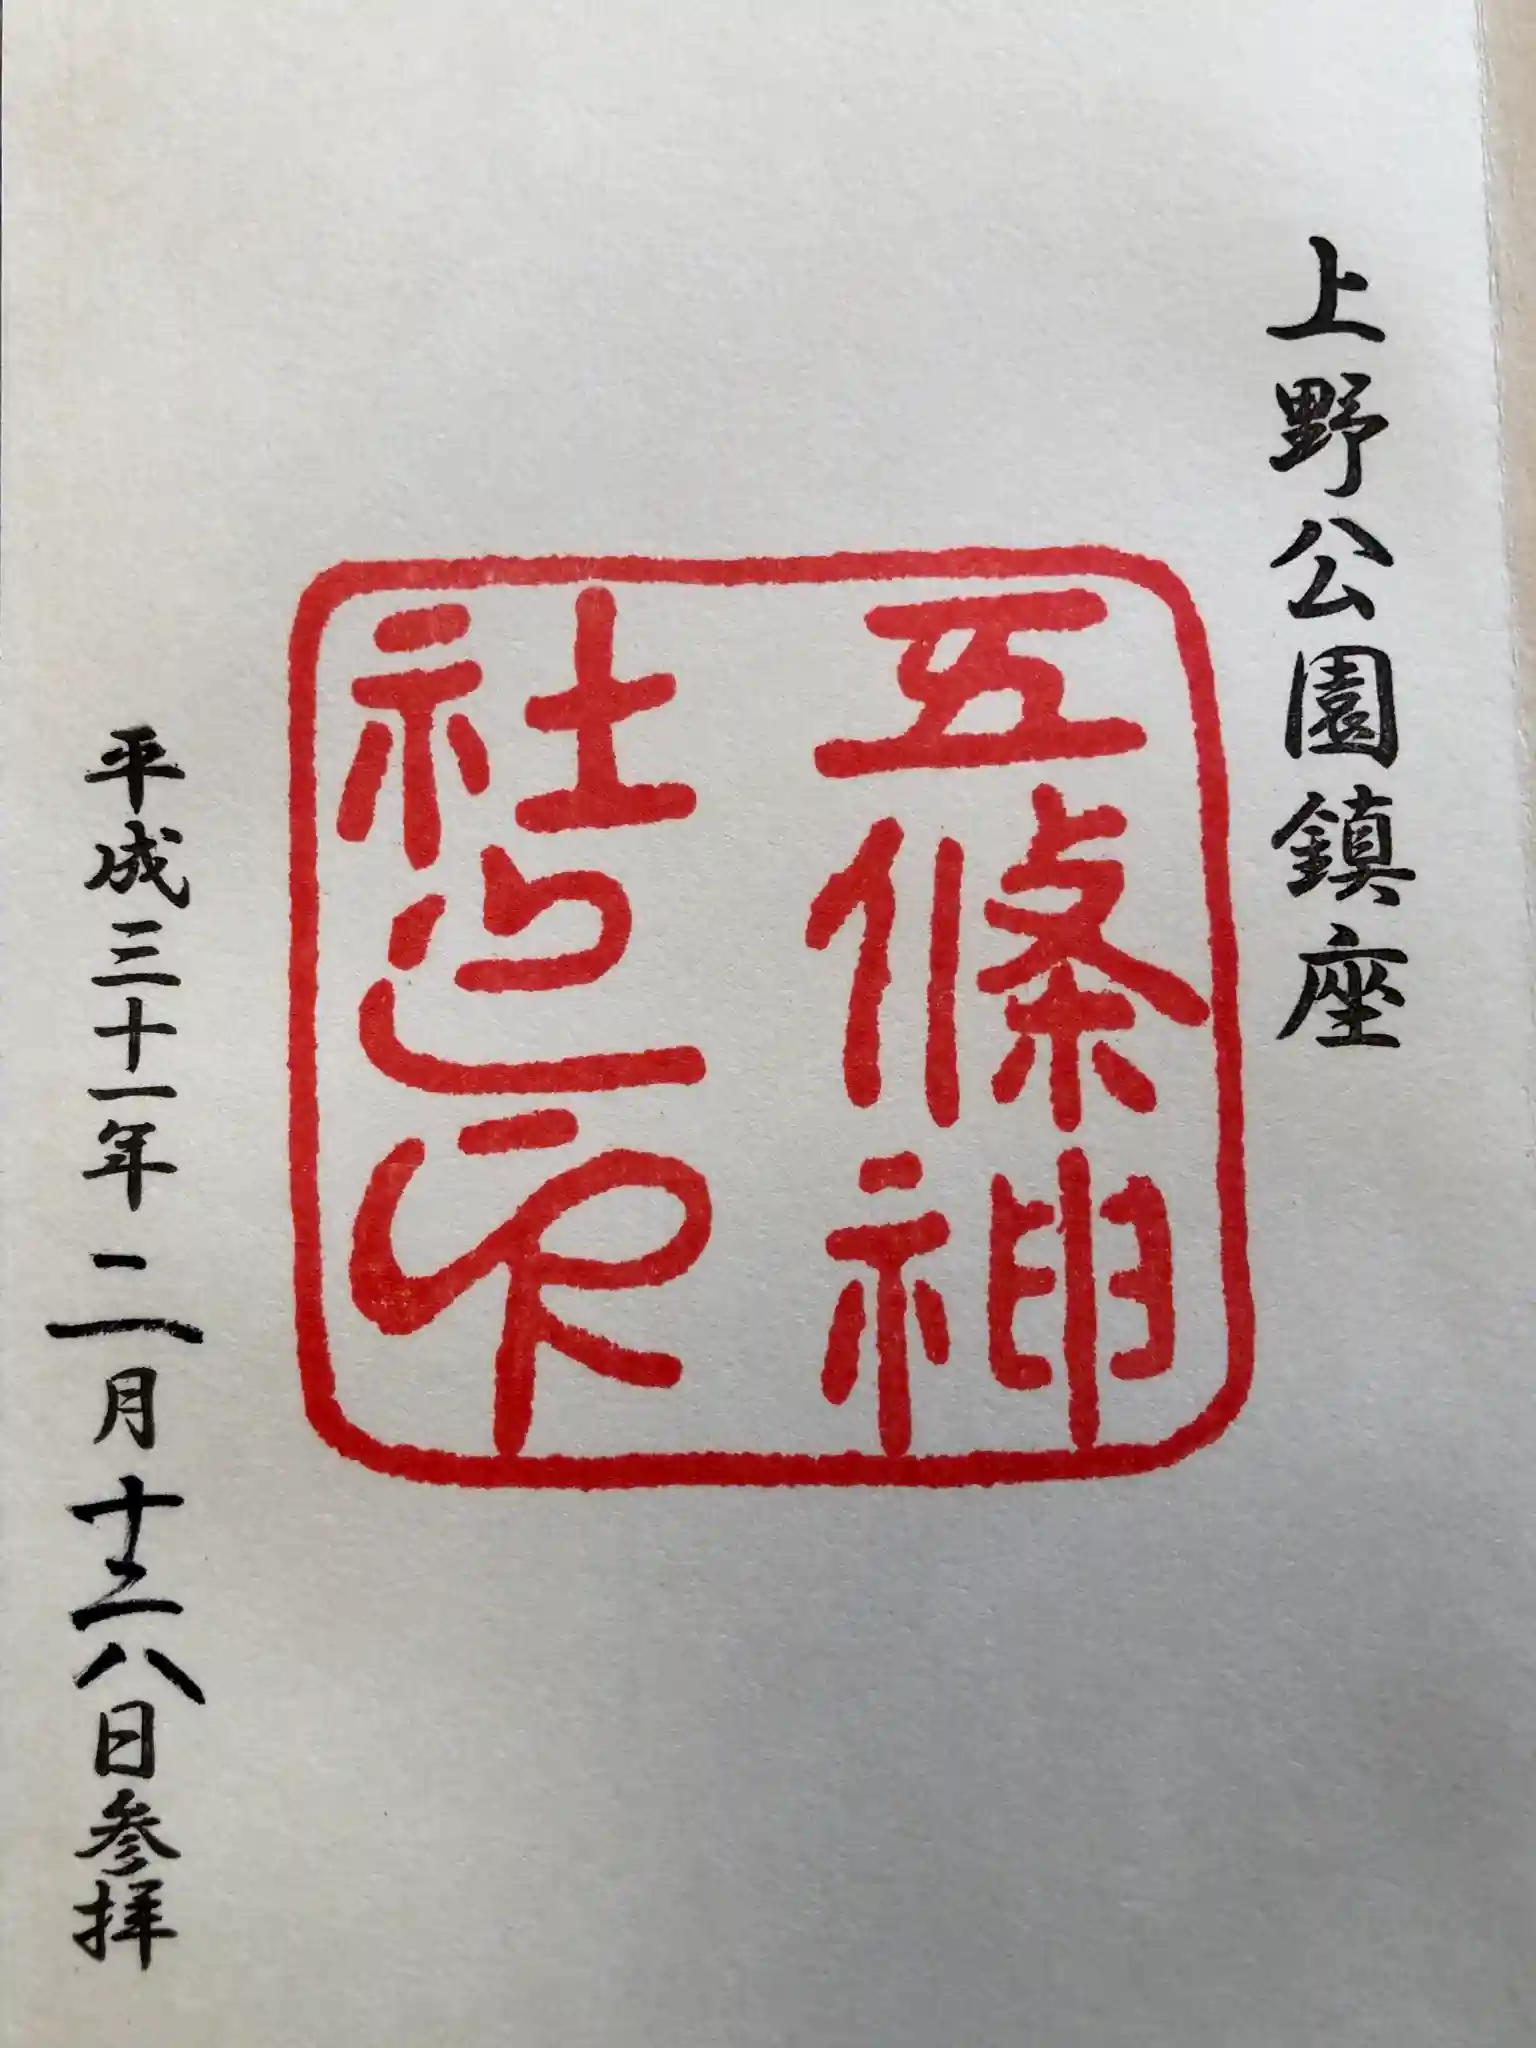 上野公園鎮座
五條神
社之印
平成三十一年二月十二八日参拝